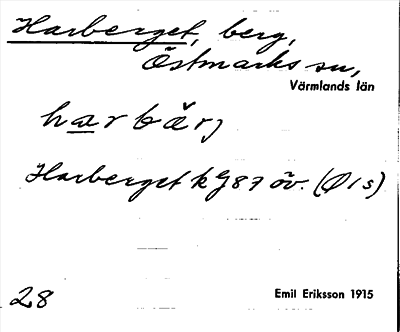 Harberget, berg,
Östmarks sn,
Värmlands län
harbärj
Harberget k g87 öv. (Ö/s)
28
Emil Eriksson 1915